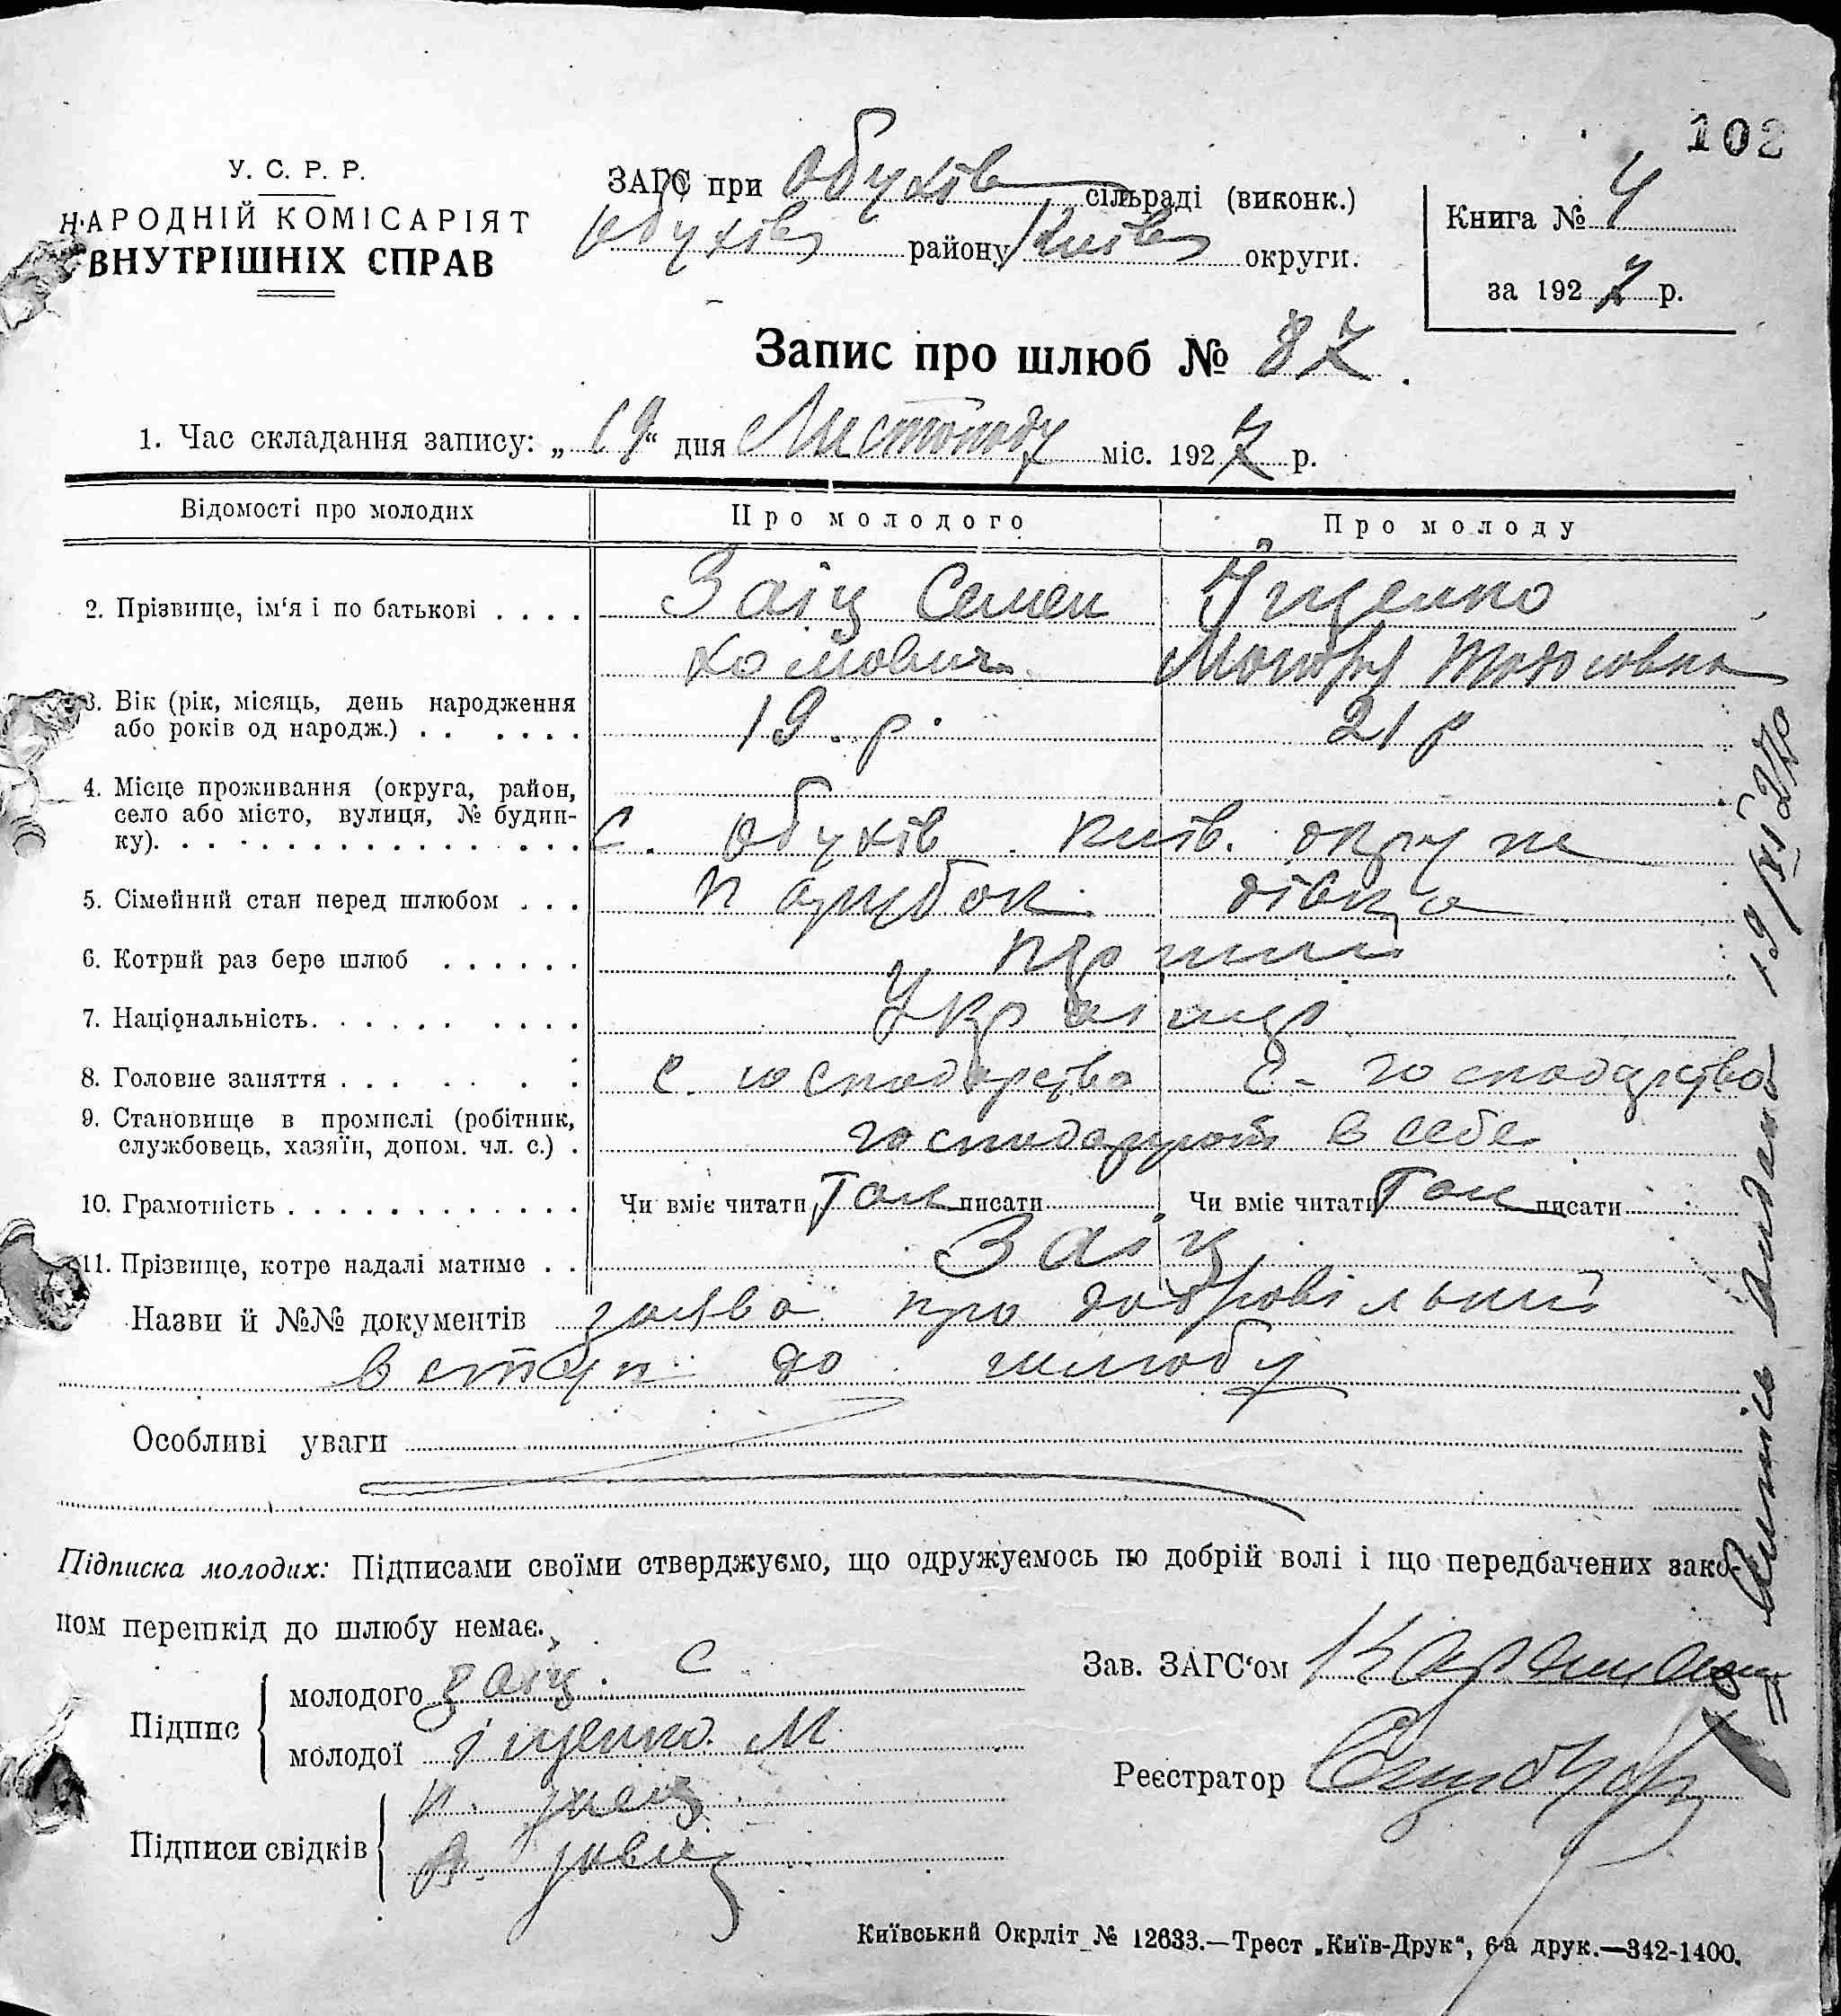 102
У. С. Р. Р.
НАРОДНІЙ КОМІСАРІЯТ
ВНУТРІШНІХ СПРАВ
ЗАГС при Обухів сільраді (виконк.)
Обухів району Київ округи.
Книга № 4
за 1927 р.
Запис про шлюб № 87.
1. Час складання запису: „19“ дня Листопаду міс. 1927 р.
Відомості про молодих
Про молодого
Про молоду
2. Прізвище, ім‘я і по батькові . . . .
Заіц Семен
Хомович
Іщенко
Мотря Тодосовна
3. Вік (рік, місяць, день народження
або років од народж.) . . . . . .
19 р.
21 р
4. Місце проживання (округа, район,
село або місто, вулиця, № будин-
ку). . . . . . . . . . . . . . . .
С. Обухів Київ. округи
5. Сімейний стан перед шлюбом . . .
парубок
дівка
6. Котрий раз бере шлюб . . . . . .
перший
7. Національність. . . . . . . . . .
Українці
8. Головне заняття . . . . . . .
С. господарство
С-господарство
9. Становище в промислі (робітник,
службовець, хазяїн, допом. чл. с.) .
господарюють в себе
10. Грамотність . . . . . . . . . . . .
Чи вміє читати Так писати
Чи вміє читати Так писати
11. Прізвище, котре надалі матиме . .
Заіц
Назви й №№ документів заява про добровільний
вступ до шлюбу
Особливі уваги
Підписка молодих: Підписами своїми стверджуємо, що одружуємось по добрій волі і що передбачених зако-
ном перешкід до шлюбу немає.
Підпис
молодого Заіц. С
молодої Іщенко. М.
Підписи свідків
Зав. ЗАГС‘ом
Реєстратор
Київський Окрліт № 12633.—Трест „Київ-Друк“, 6-а друк.—342-1400.
19/XI 27р